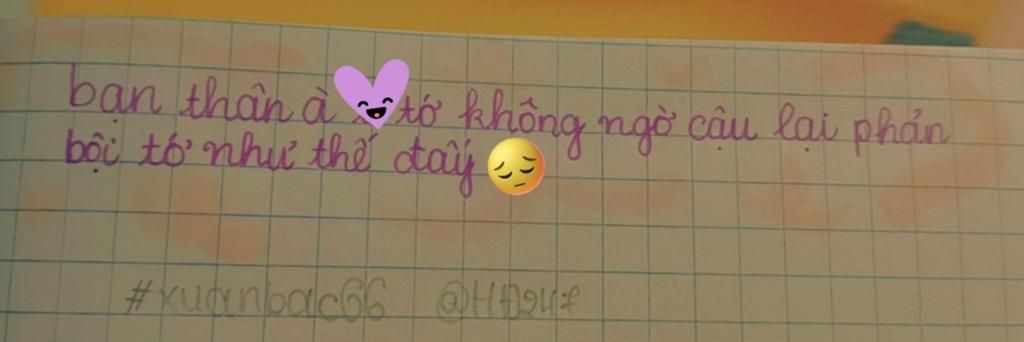 bạn thân à 💜 tớ không ngờ cậu lại phản
bội tớ như thế đấy 😔
#xuanbac66